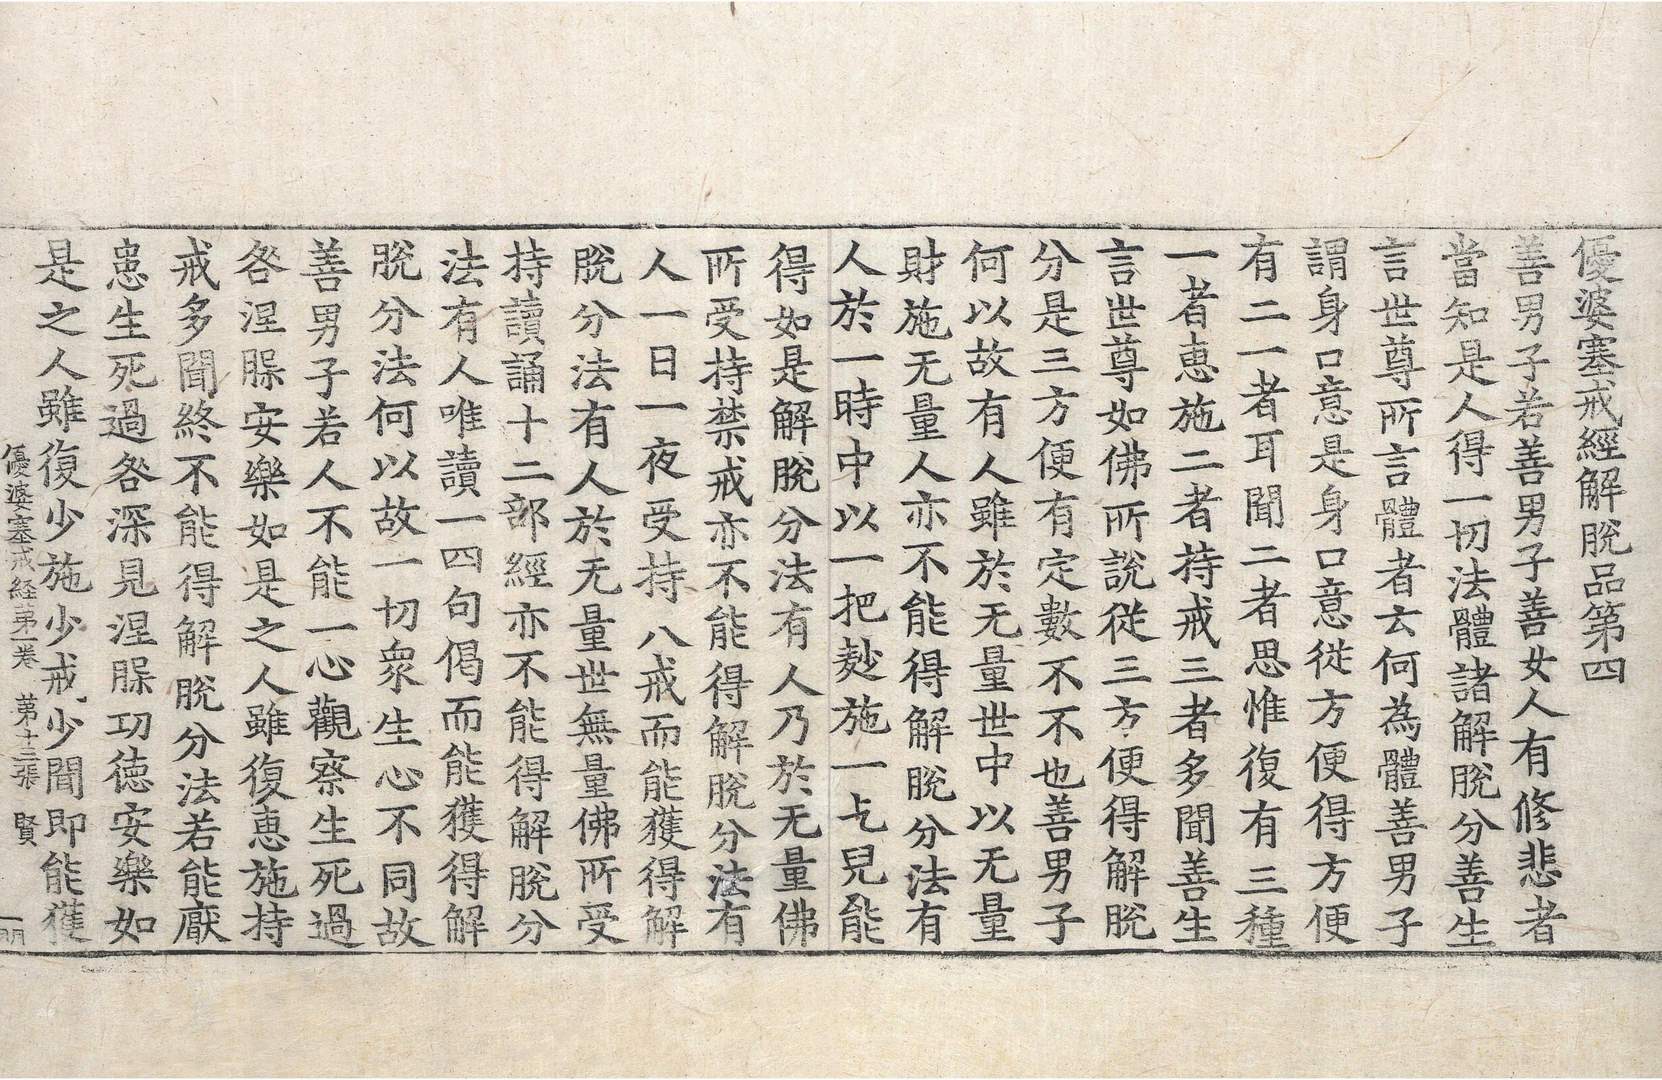 優婆塞戒經解脫品第四
善男子若善男子善女人有修悲者
當知是人得一切法體諸解脫分善生
言世尊所言體者云何為體善男子
謂身口意是身口意從方便得方便
有二一者耳聞二者思惟復有三種
一者惠施二者持戒三者多聞善生
言世尊如佛所說從三方便得解脫
分是三方便有定數不不也善男子
何以故有人雖於无量世中以无量
財施无量人亦不能得解脫分法有
人於一時中以一把麨施一乞兒能
得如是解脫分法有人乃於无量佛
所受持禁戒亦不能得解脫分法有
人一日一夜受持八戒而能獲得解
脫分法有人於无量世無量佛所受
持讀誦十二部經亦不能得解脫分
法有人唯讀一四句偈而能獲得解
脫分法何以故一切衆生心不同故
善男子若人不能一心觀察生死過
咎涅槃安樂如是之人雖復惠施持
戒多聞終不能得解脫分法若能厭
患生死過咎深見涅槃功徳安樂如
是之人雖復少施少戒少聞即能獲
優婆塞戒経第一卷 第十三張 賢